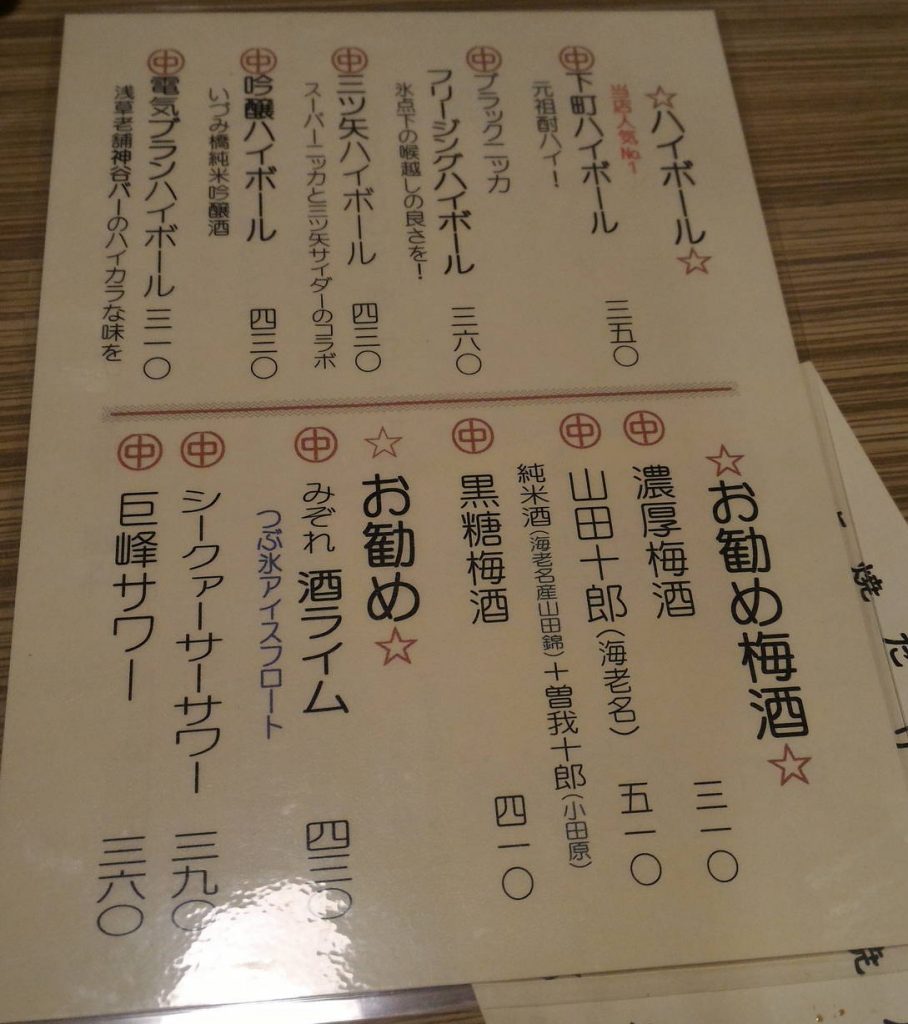 ☆ハイボール☆
当店人気No.1
㊥下町ハイボール 三五〇
元祖酎ハイ!
㊥ブラックニッカ
フリージングハイボール 三六〇
氷点下の喉越しの良さを!
㊥三ツ矢ハイボール 四三〇
スーパーニッカと三ツ矢サイダーのコラボ
㊥吟醸ハイボール 四三〇
いづみ橋純米吟醸酒
㊥電気ブランハイボール 三一〇
浅草老舗神谷バーのハイカラな味を
☆お勧め梅酒☆
㊥濃厚梅酒 三一〇
㊥山田十郎(海老名) 五一〇
純米酒(海老名産山田錦)+曽我十郎(小田原)
㊥黒糖梅酒 四一〇
☆お勧め☆
㊥みぞれ 酒ライム 四三〇
つぶ氷アイスフロート
㊥シークァーサーサワー 三九〇
㊥巨峰サワー 三六〇
焼